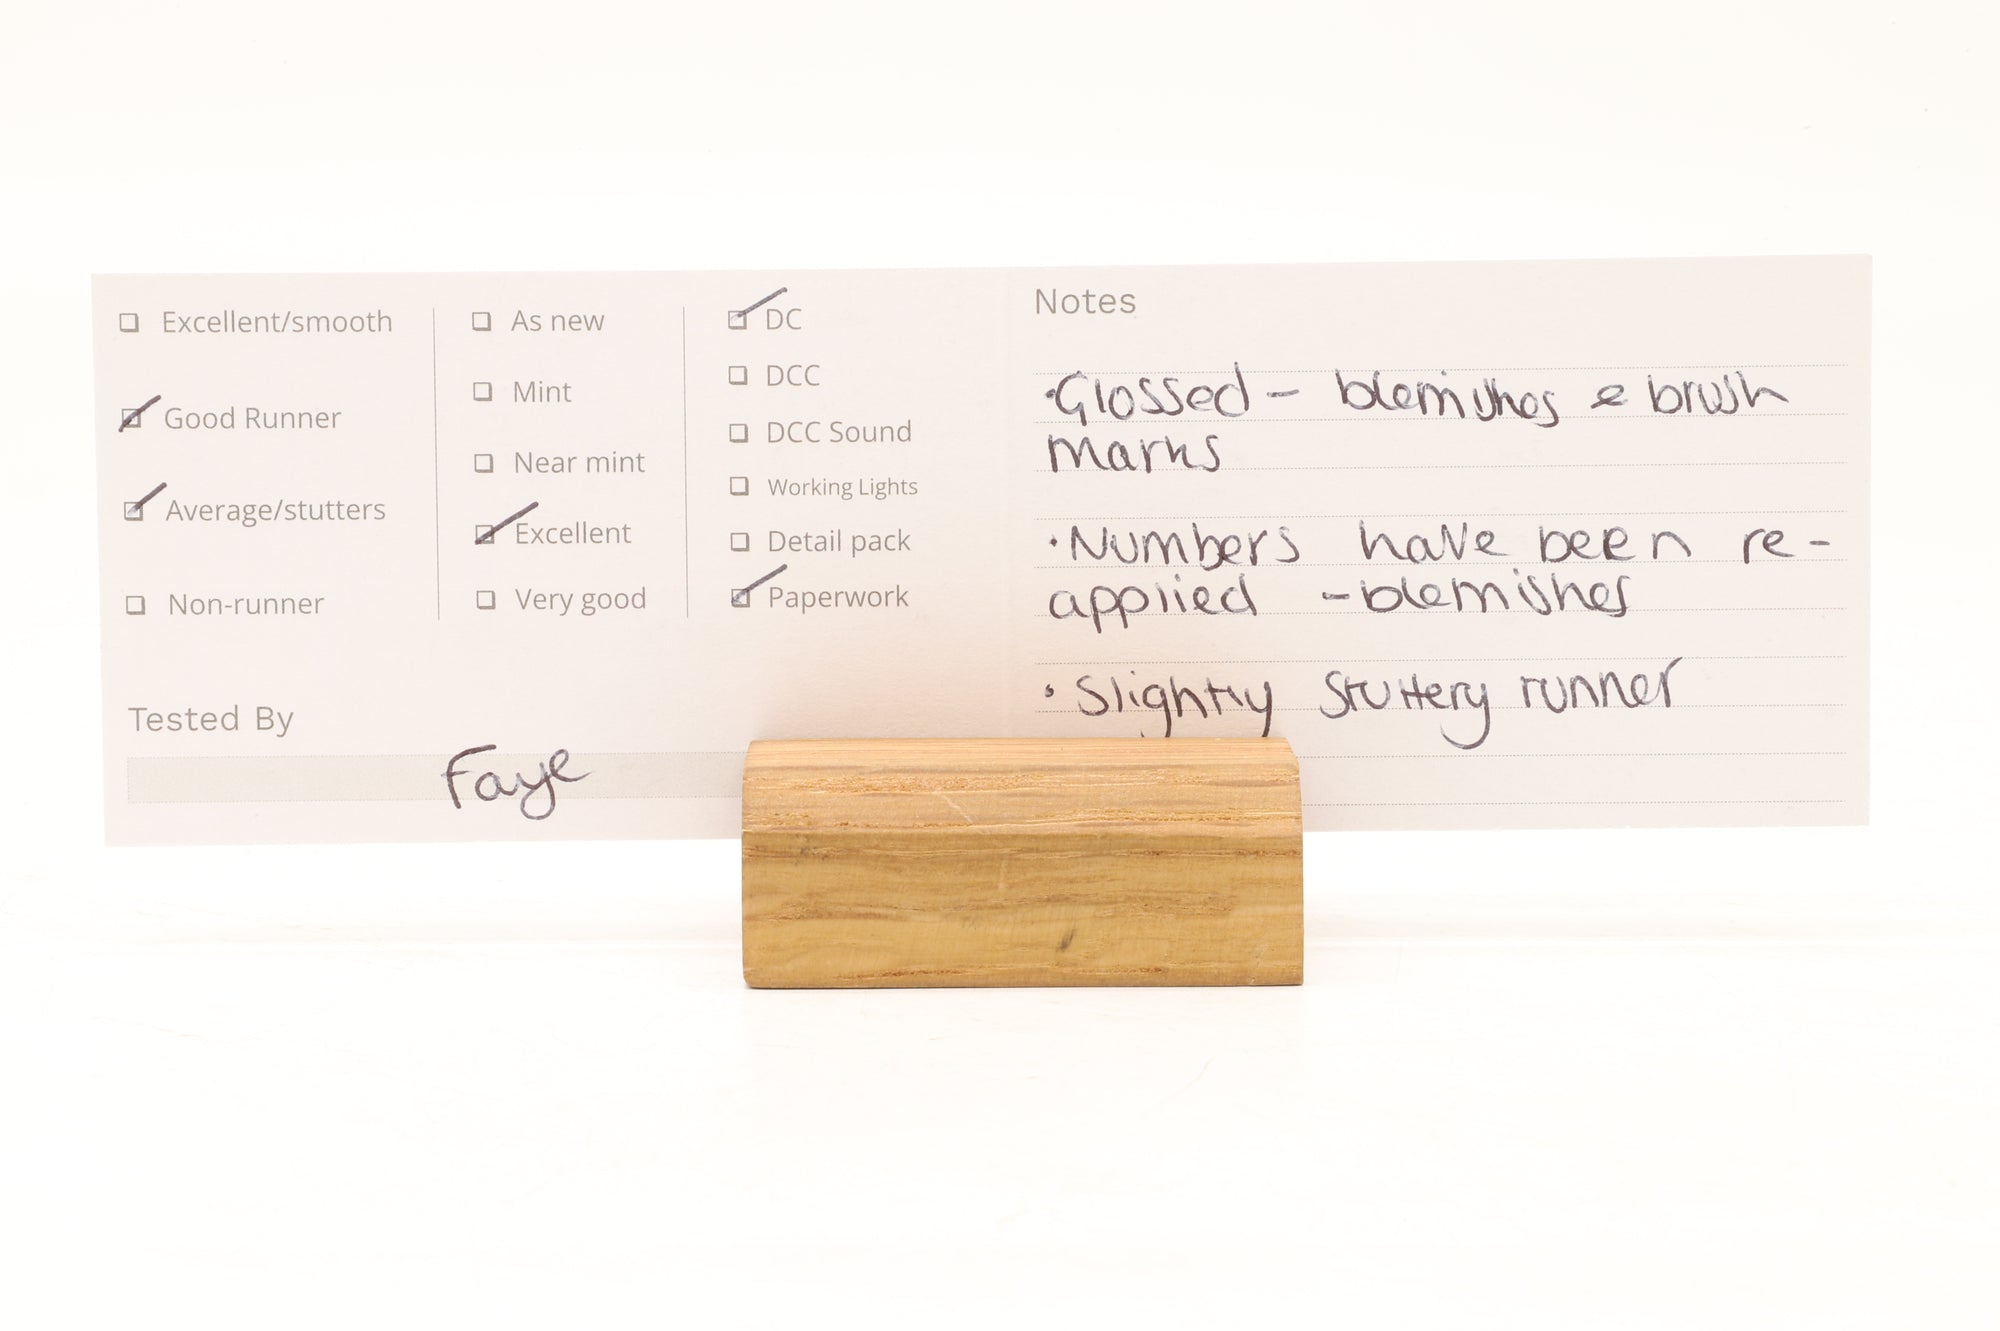 Excellent/smooth
Good Runner
Average/stutters
Non-runner
As new
Mint
Near mint
Excellent
Very good
DC
DCC
DCC Sound
Working Lights
Detail pack
Paperwork
Tested By
Faye
Notes
·Glossed - blemishes & brush
marks
·Numbers have been re-
applied -blemishes
·Slightly stuttery runner